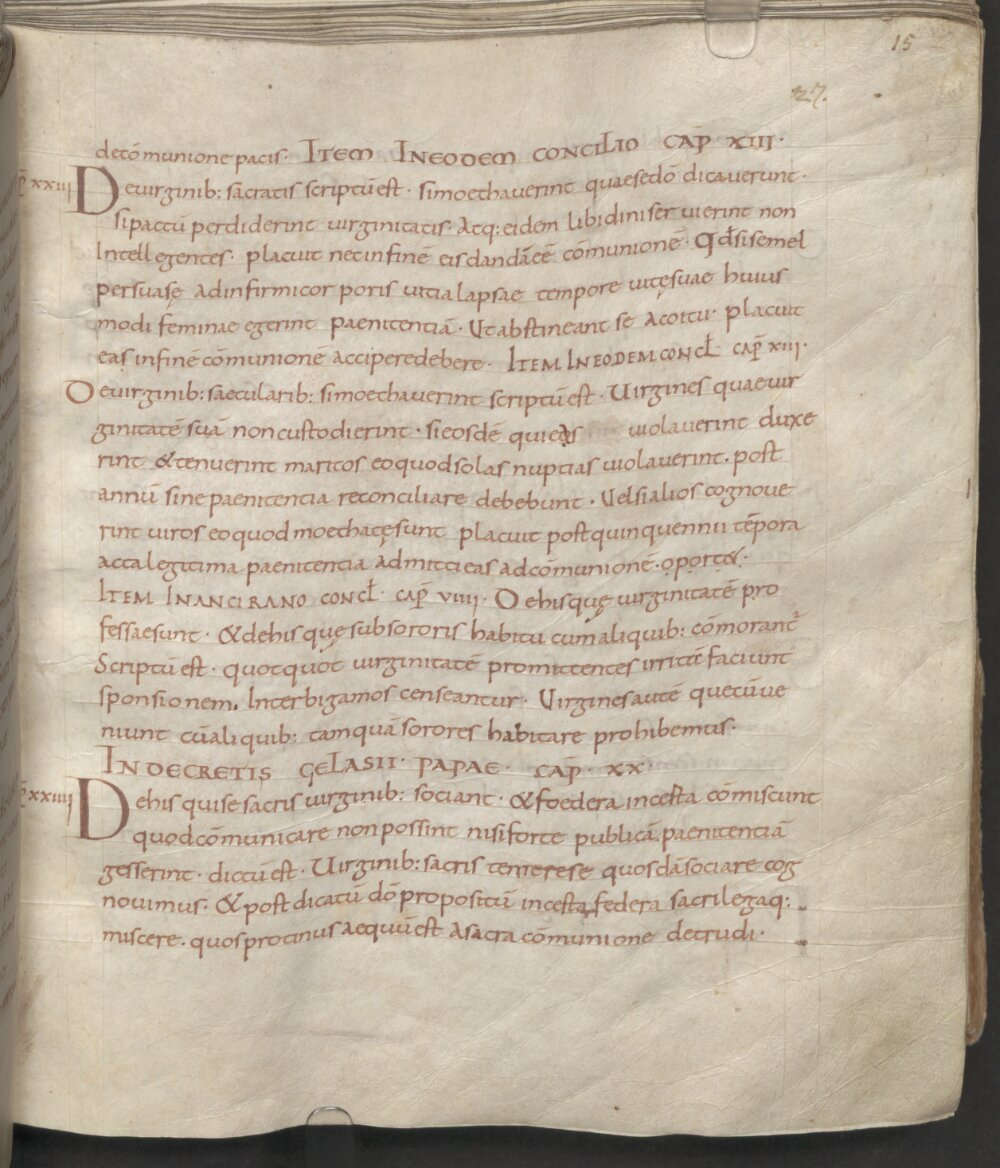 15
27.
decōmunione pacis· ITEM INEODEM CONCILIO CAP̄ XIII·
xxiii Deuirginib: sacratis scriptū est· simoechauerint quaesedō dicauerunt·
sipactū perdiderint uirginitatis· Atq: eidem libidini seruierint non
Intellegentes· placuit necinfinē eis dandā eē cōmunionē· Qd̄ si semel
persuasę ad infirmi corporis uitia lapsae tempore uitę suae huius
modi feminae egerint paenitentiā· Ut abstineant se acoitu· placuit
eas infinē cōmunionē accipere debere· ITEM INEODEM CONCL̄ CAP̄ XIII·
Deuirginib: saecularib: simoechauerint scriptū est· Uirgines quae uir
ginitatē suā non custodierint· si eosdē qui eas uiolauerint duxe
rint & tenuerint maritos eo quod solas nuptias uiolauerint· post
annū sine paenitentia reconciliare debebunt· Uel si alios cognoue
rint uiros eo quod moechatę sunt placuit post quinquennii tēpora
acta legitima paenitentia admitti eas ad cōmunionē· oport&·
ITEM INANCIRANO CONCL̄ CAP̄ VIIII· Dehis quę uirginitatē pro
fessae sunt· & dehis quę sub sororis habitu cum aliquib: cōmorant̄
Scriptū est· quotquot uirginitatē promittentes irritē faciunt
sponsionem, Inter bigamos censeantur· Uirgines autē quecūue
niunt cū aliquib: tamquā sorores habitare prohibemus·
IN DECRETIS GELASII· PAPAE· CAP̄ XX
xxiiii Dehis qui se sacris uirginib: sociant· & foedera incesta cōmiscunt
quod cōmunicare non possint nisi forte publicā paenitentiā
gesserint· dictū est· Uirginib: sacris temere se quosdā sociare cog
nouimus· & post dicatū dō propositū incesta federa sacrilegaq:
miscere· quos protinus aequū est Asacra cōmunione detrudi·